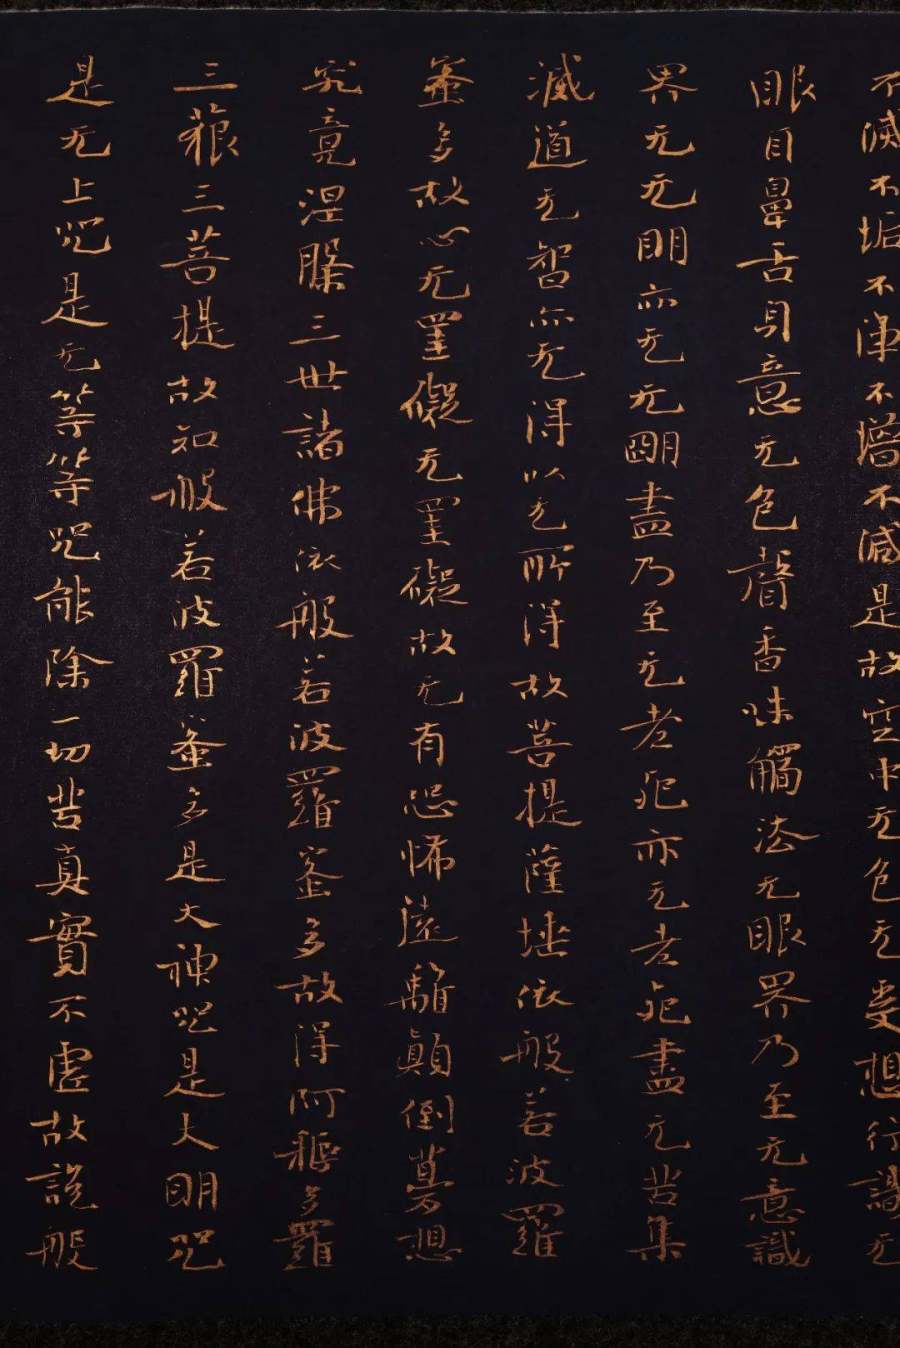 不滅不垢不淨不增不減是故空中无色无受想行識无
眼耳鼻舌身意无色聲香味觸法无眼界乃至无意識
界无无明亦无无明盡乃至无老死亦无老死盡无苦集
滅道无智亦无得以无所得故菩提薩埵依般若波羅
蜜多故心无罣礙无罣礙故无有恐怖遠離顛倒夢想
究竟涅槃三世諸佛依般若波羅蜜多故得阿耨多羅
三藐三菩提故知般若波羅蜜多是大神咒是大明咒
是无上咒是无等等咒能除一切苦真實不虛故說般